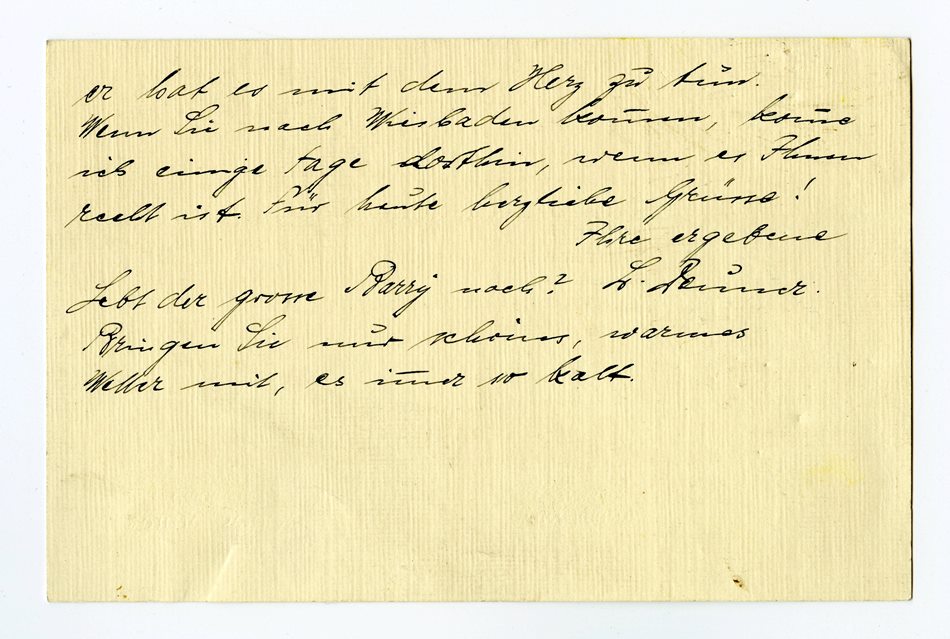 er hat es mit dem Herz zu tun.
Wenn Sie nach Wiesbaden kom̅en, kom̅e
ich einige Tage dorthin, wenn es Ihnen
recht ist. Für heute herzliebe Grüsse!
Ihre ergebene
Lebt der grosse Barry noch? L.
Bringen Sie nur schönes, warmes
Wetter mit, es im̅er so kalt.